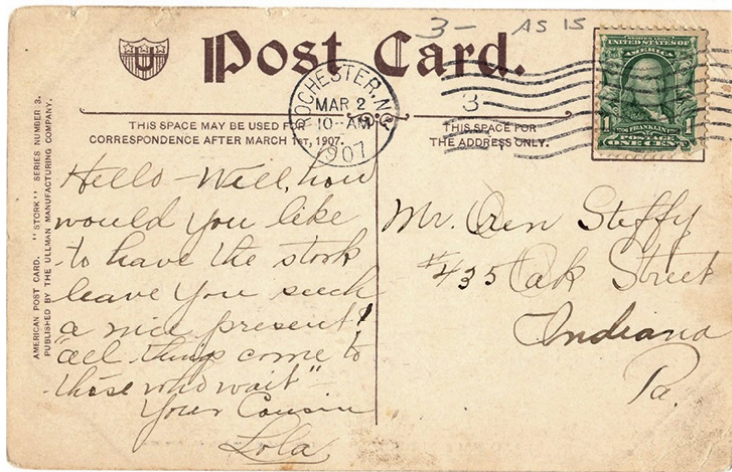 3- AS IS
U
Post Card.
UNITED STATES OF
AMERICA
1 FRANKLIN 1
ONE CENT
ROCHESTER, N.Y.
MAR 2
10-AM
1907
3
THIS SPACE MAY BE USED FOR
CORRESPONDENCE AFTER MARCH 1ST, 1907.
THIS SPACE FOR
THE ADDRESS ONLY.
AMERICAN POST CARD. "STORK" SERIES NUMBER 3.
PUBLISHED BY THE ULLMAN MANUFACTURING COMPANY.
Hello - Well, how
would you like
to have the stork
leave you such
a nice present!
"all things come to
those who wait" -
Your Cousin
Lola
Mr. Oren Steffy
#435 Oak Street
Indiana
Pa.